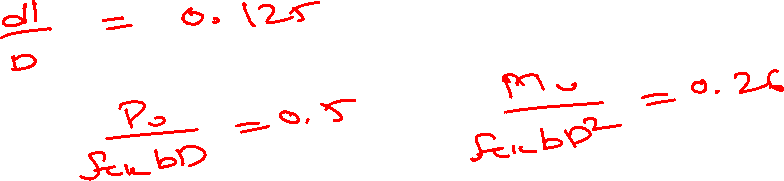 d'/D = 0.125
Pu/fckbD = 0.5    Mu/fckbD² = 0.26